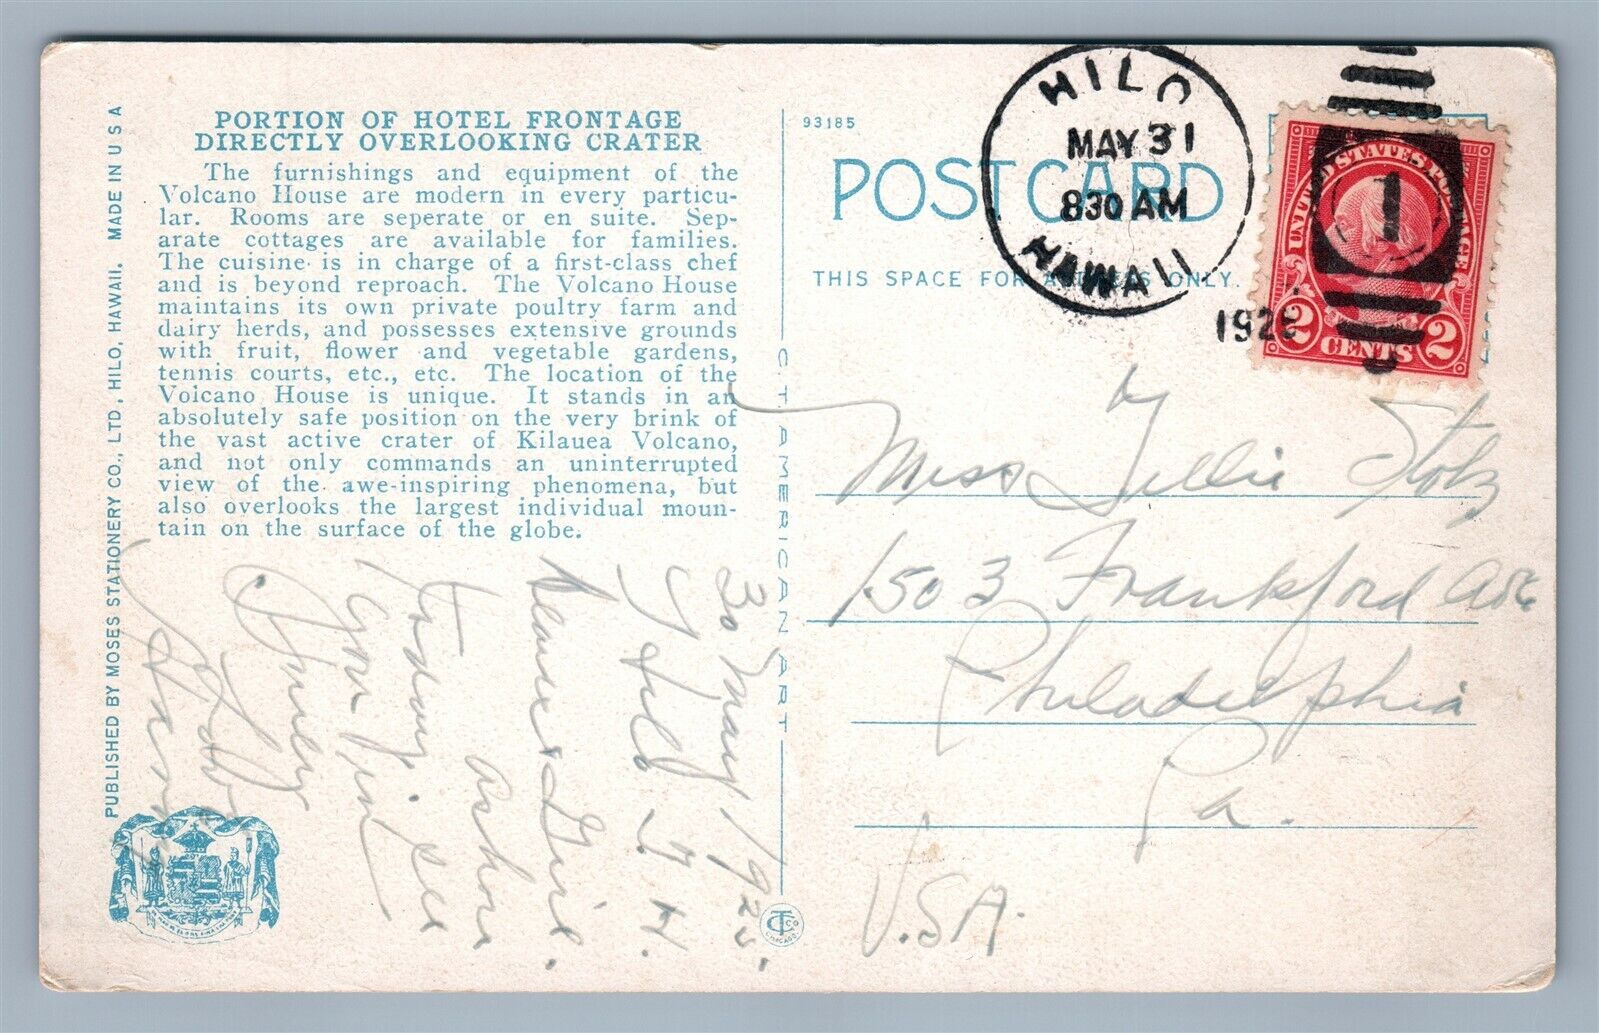 PORTION OF HOTEL FRONTAGE
DIRECTLY OVERLOOKING CRATER
The furnishings and equipment of the
Volcano House are modern in every particu-
lar. Rooms are seperate or en suite. Sep-
arate cottages are available for families.
The cuisine is in charge of a first-class chef
and is beyond reproach. The Volcano House
maintains its own private poultry farm and
dairy herds, and possesses extensive grounds
with fruit, flower and vegetable gardens,
tennis courts, etc., etc. The location of the
Volcano House is unique. It stands in an
absolutely safe position on the very brink of
the vast active crater of Kilauea Volcano,
and not only commands an uninterrupted
view of the awe-inspiring phenomena, but
also overlooks the largest individual moun-
tain on the surface of the globe.
PUBLISHED BY MOSES STATIONERY CO., LTD., HILO, HAWAII. MADE IN U S A
30 May 1925.
Hilo T. H.
ashore
today. See
Harry
C T AMERICAN ART
CHICAGO
93185
POST CARD
THIS SPACE FOR ADDRESS ONLY.
HILO
MAY 31
830 AM
HAWAII
192
1
UNITED STATES POSTAGE
2 CENTS 2
Miss Tillie Stotz
1503 Frankford Ave
Philadelphia
Pa.
U.S.A.